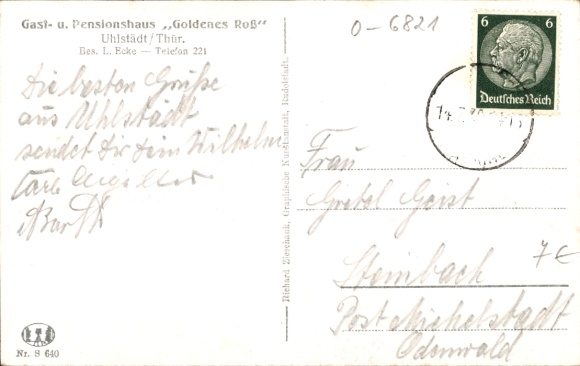 Gast- u. Pensionshaus „Goldenes Roß“
Uhlstädt/Thür.
Bes. L. Ecke — Telefon 221
Die besten Grüße
aus Uhlstädt
sendet Dir Dein Wilhelm
Karl
0-6821
6 6
Deutsches Reich
Richard Zieschank, Graphische Kunstanstalt, Rudolstadt.
Frau
Gretel Geist
Steinbach
7€
Post Michelstadt
Odenwald
Nr. S 640